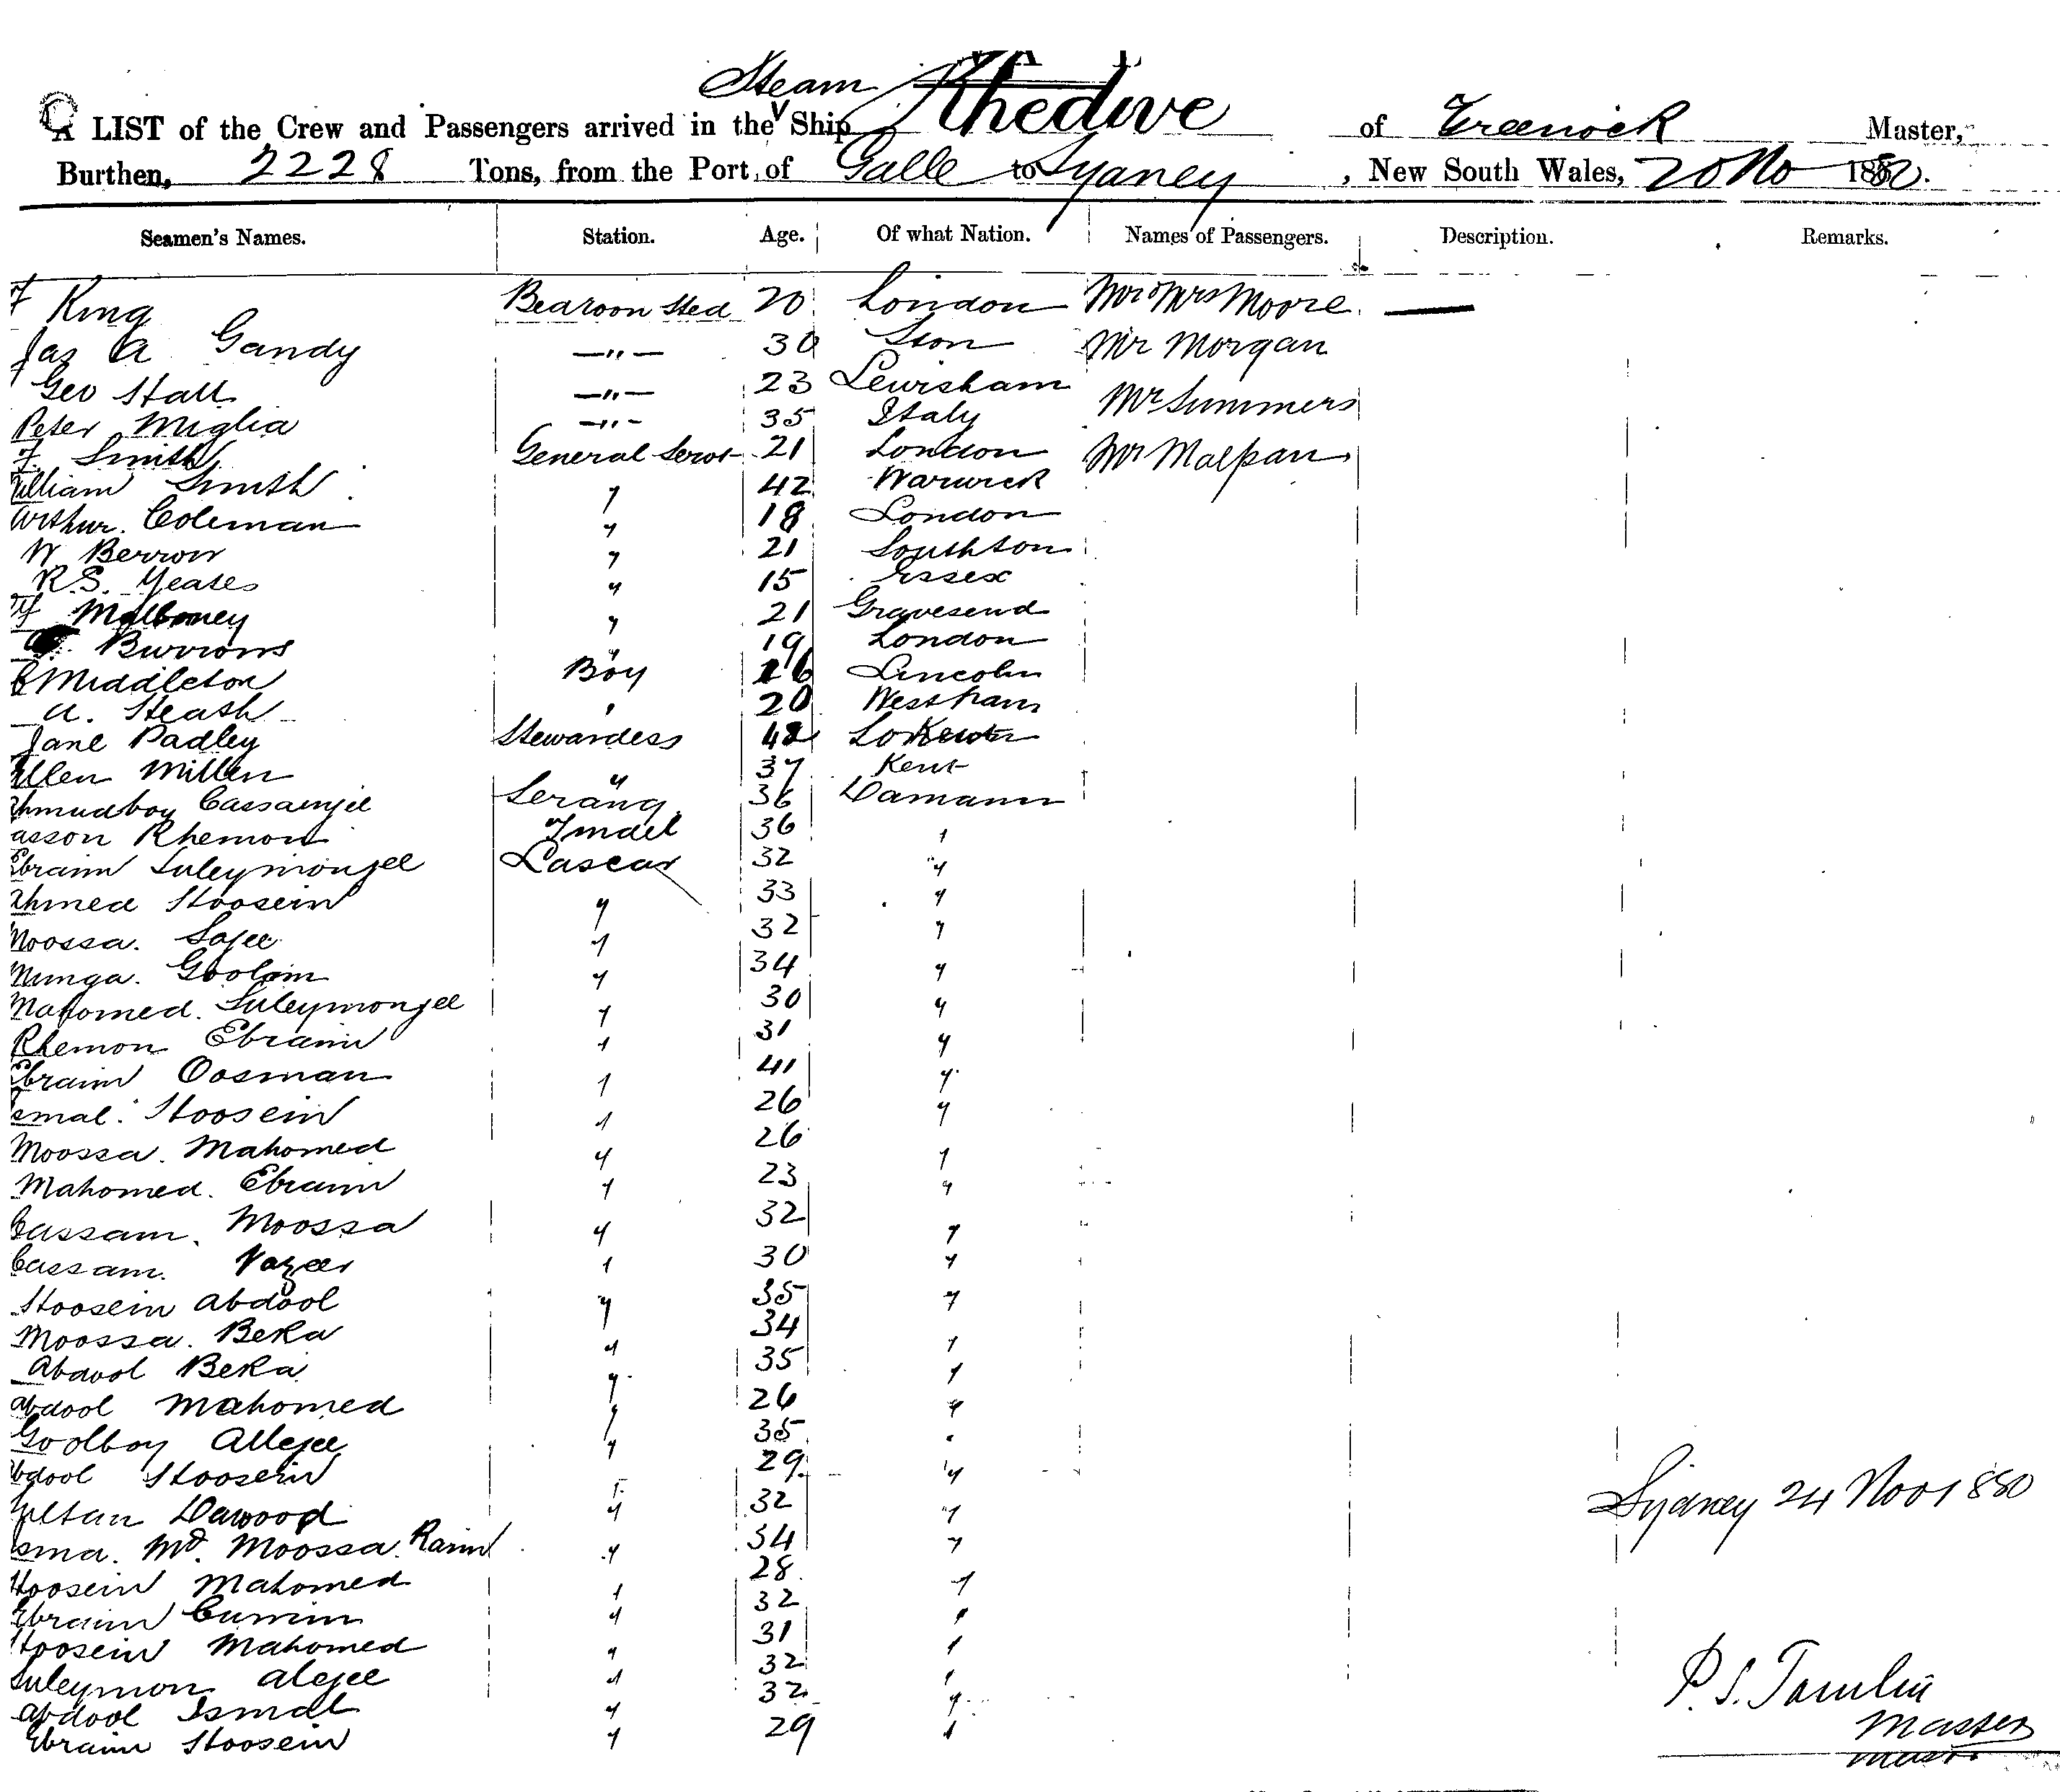 Steam
A LIST of the Crew and Passengers arrived in the Ship Khedive of Greenock Master,
Burthen, 2228 Tons, from the Port of Galle to Sydney, New South Wales, 20 No 1880.
Seamen's Names. Station. Age. Of what Nation. Names of Passengers. Description. Remarks.
F King Bedroom Sted 20 London Mr & Mrs Moore —
Jas A Gandy —"— 30 Mr Morgan
Geo Hall —"— 23 Lewisham Mr Summers
Peter Miglia —"— 35 Italy
F. Smith General Servt 21 London Mr Malpan
William Smith " 42 Warwick
Arthur Coleman " 18 London
W Berrow " 21 Southton
R.S. Yeates " 15 Essex
Malboney " 21 Gravesend
Burrows " 19 London
C Middleton Boy 16 Lincoln
A. Heath " 20 Westham
Jane Padley Stewardess 42
Ellen Millen " 37 Kent
Ahmudboy Cassamjee Serang 36 Damaun
asson Rhemon Tindel 36 "
Ebraim Suleymonjee Lascar 32 "
Ahmed Hoosein " 33 "
Moossa. Sajee " 32 "
Nunga. Goolam " 34 "
Mahomed. Suleymonjee " 30 "
Rhemon Ebraim " 31 "
Ebraim Oosman " 41 "
Esmal. Hoosein " 26 "
Moossa. Mahomed " 26 "
Mahomed. Ebraim " 23 "
Cassam. Moossa " 32 "
Cassam. Vazeer " 30 "
Hoosein Abdool " 35 "
Moossa. Beka " 34 "
Abdool Beka " 35 "
Abdool Mahomed " 26 "
Goolboy Allejee " 35 "
Abdool Hoosein " 29 "
Sultan Dawood " 32 "
Esma. Md. Moossa. Raim " 34 "
Hoosein Mahomed " 28 "
Ebraim Cumim " 32 "
Hoosein Mahomed " 31 "
Suleymon Alejee " 32 "
Abdool Ismal " 32 "
Ebraim Hoosein " 29 "
Sydney 24 Nov 1880
P. S. Tomlin
Master